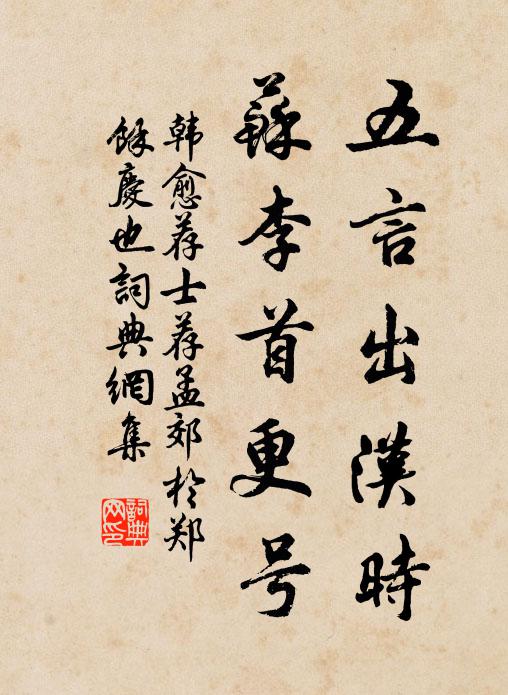 五言出漢時
蘇李首更号
韩愈荐士荐孟郊於郑
餘慶也詞典網集
詞典网印